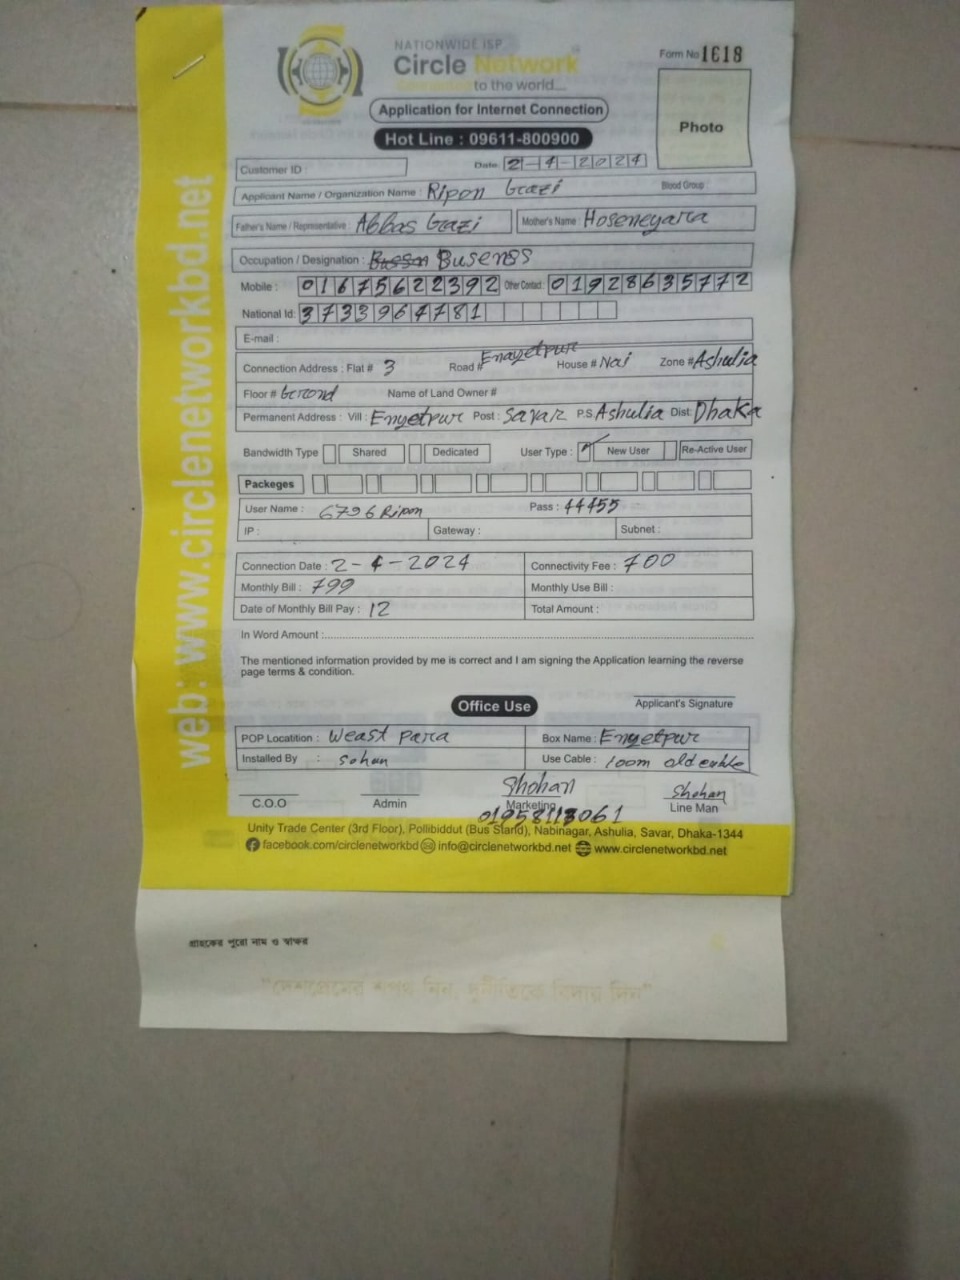 NATIONWIDE ISP
Circle Network
to the world....
Form No 1618
Application for Internet Connection
Hot Line : 09611-800900
Photo
Customer ID :
Date: 2-4-2024
Applicant Name / Organization Name : Ripon Gazi
Blood Group :
Father's Name / Representative : Abbas Gazi
Mother's Name : Hoseneyara
Occupation / Designation : Busenss
Mobile : 01675622392 Other Contact : 01928635772
National Id: 3733964781
E-mail :
Connection Address : Flat # 3 Road # Enayetpur House # Nai Zone # Ashulia
Floor # Gerond Name of Land Owner #
Permanent Address : Vill : Enyetpur Post : Savar P.S Ashulia Dist: Dhaka
Bandwidth Type Shared Dedicated User Type : New User Re-Active User
Packeges
User Name : 6796 Ripon Pass : 44455
IP : Gateway : Subnet :
Connection Date : 2-4-2024 Connectivity Fee : 700
Monthly Bill : 799 Monthly Use Bill :
Date of Monthly Bill Pay : 12 Total Amount :
In Word Amount :
The mentioned information provided by me is correct and I am signing the Application learning the reverse
page terms & condition.
Applicant's Signature
Office Use
POP Locatition : Weast Para Box Name : Enyetpur
Installed By : Sohan Use Cable : 100m old cable
Shohan Shohan
C.O.O Admin Marketing Line Man
01958113061
Unity Trade Center (3rd Floor), Pollibiddut (Bus Stand), Nabinagar, Ashulia, Savar, Dhaka-1344
facebook.com/circlenetworkbd info@circlenetworkbd.net www.circlenetworkbd.net
web: www.circlenetworkbd.net
গ্রাহকের পুরো নাম ও স্বাক্ষর
"দেশপ্রেমের শপথ নিন, দুর্নীতিকে বিদায় দিন"